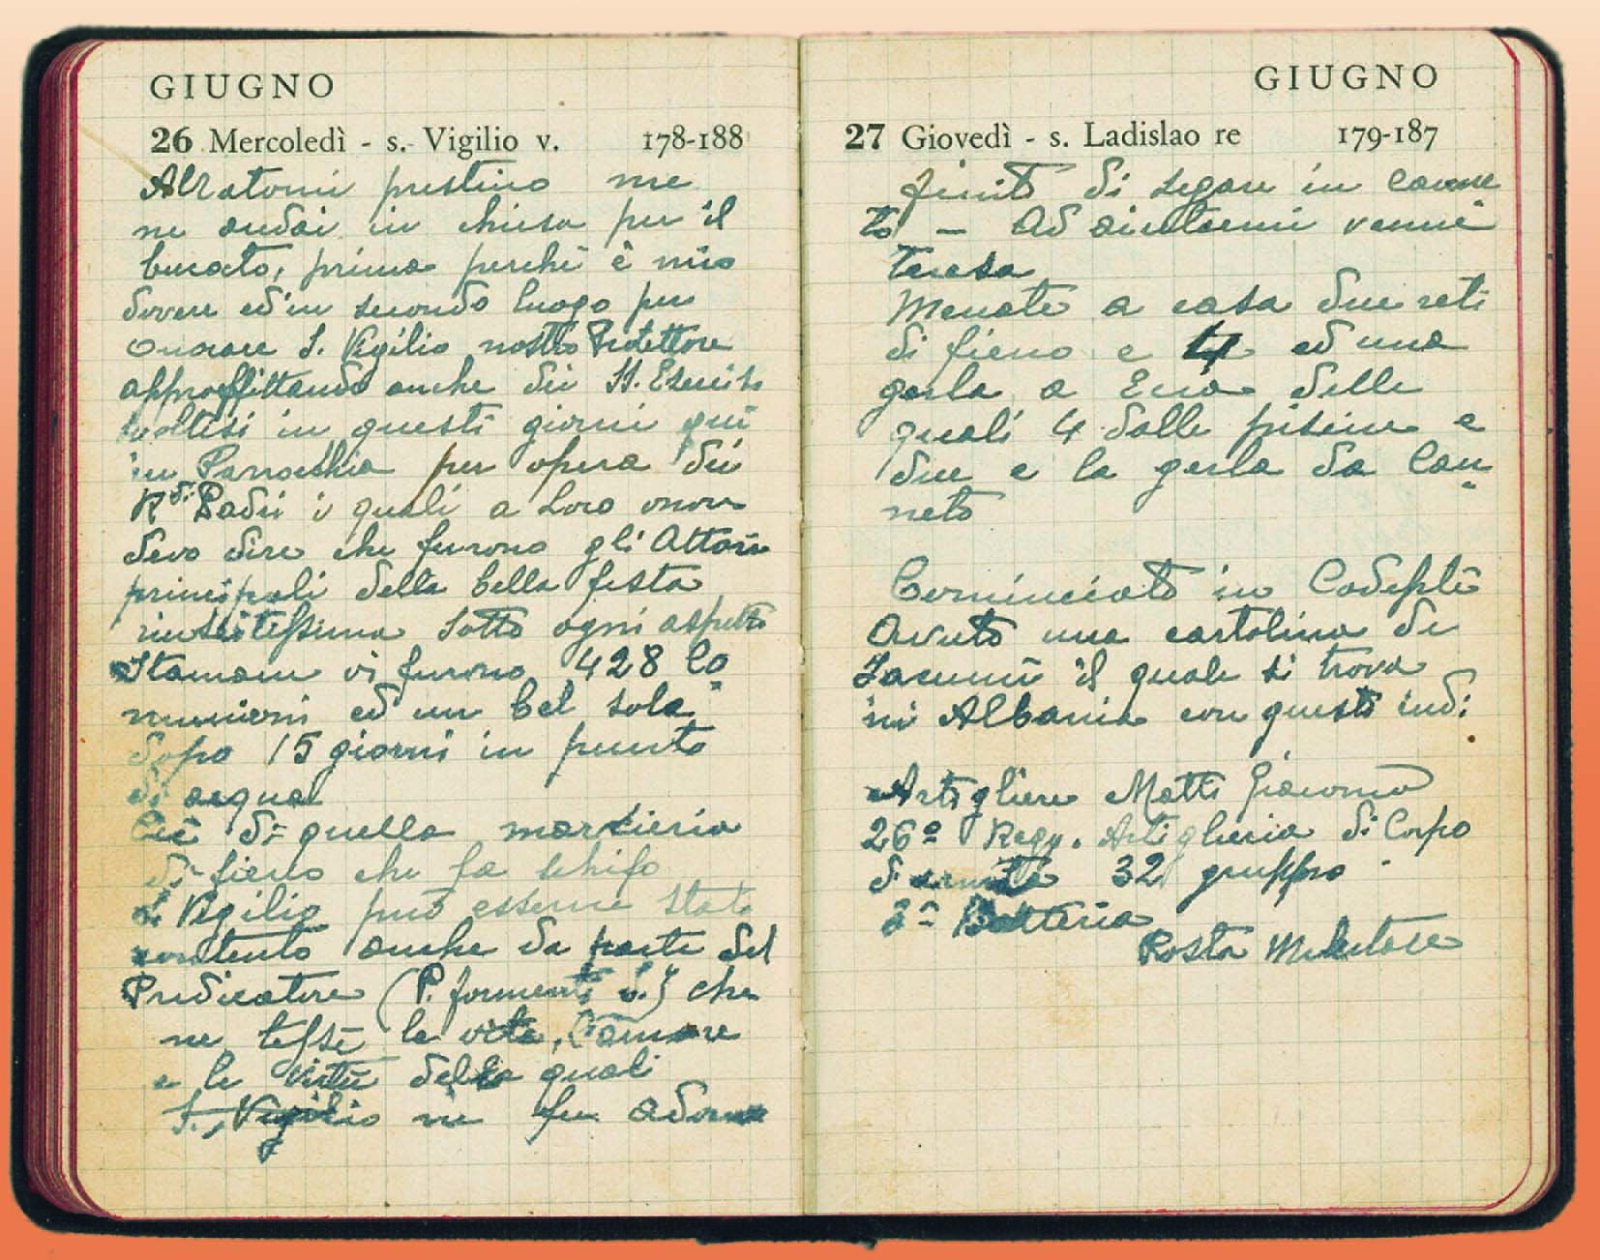 GIUGNO
26 Mercoledì - s. Vigilio v. 178-188
Alzatomi prestino me
ne andai in chiesa per il
bucato, prima perchè è mio
dovere ed in secondo luogo per
onorare S. Vigilio nostro Protettore
approffittando anche dei SS. Esercizi
svoltisi in questi giorni qui
in Parrocchia per opera dei
R.di Padri i quali a loro onore
devo dire che furono gli Attori
principali della bella festa
riuscitessima sotto ogni aspetto
Stamane vi furono 428 Co
munioni ed un bel sole
dopo 15 giorni in punto
di acqua
C'è di quella
di fieno che fa schifo
S. Vigilio può esserne stato
contento anche da parte del
Predicatore (P. formenti L.) che
ne tessè la vita, l'amore
e le virtù delle quali
S. Vigilio ne fu adorno
GIUGNO
27 Giovedì - s. Ladislao re 179-187
finito di segare in Canne
to - Ad aiutarmi venne
Teresa
Menate a casa due reti
di fieno e 4 ed una
gerla a Ecia delle
quali 4 dalle piscine e
due e la gerla da Can
neto
Cominciato in
Avuto una cartolina di
Iacumì il quale si trova
in Albania con questo indi
Artigliere Motti Giacomo
26º Regg. Artiglieria di Corpo
d'armata 32 gruppo
2ª Batteria
Posta Militare